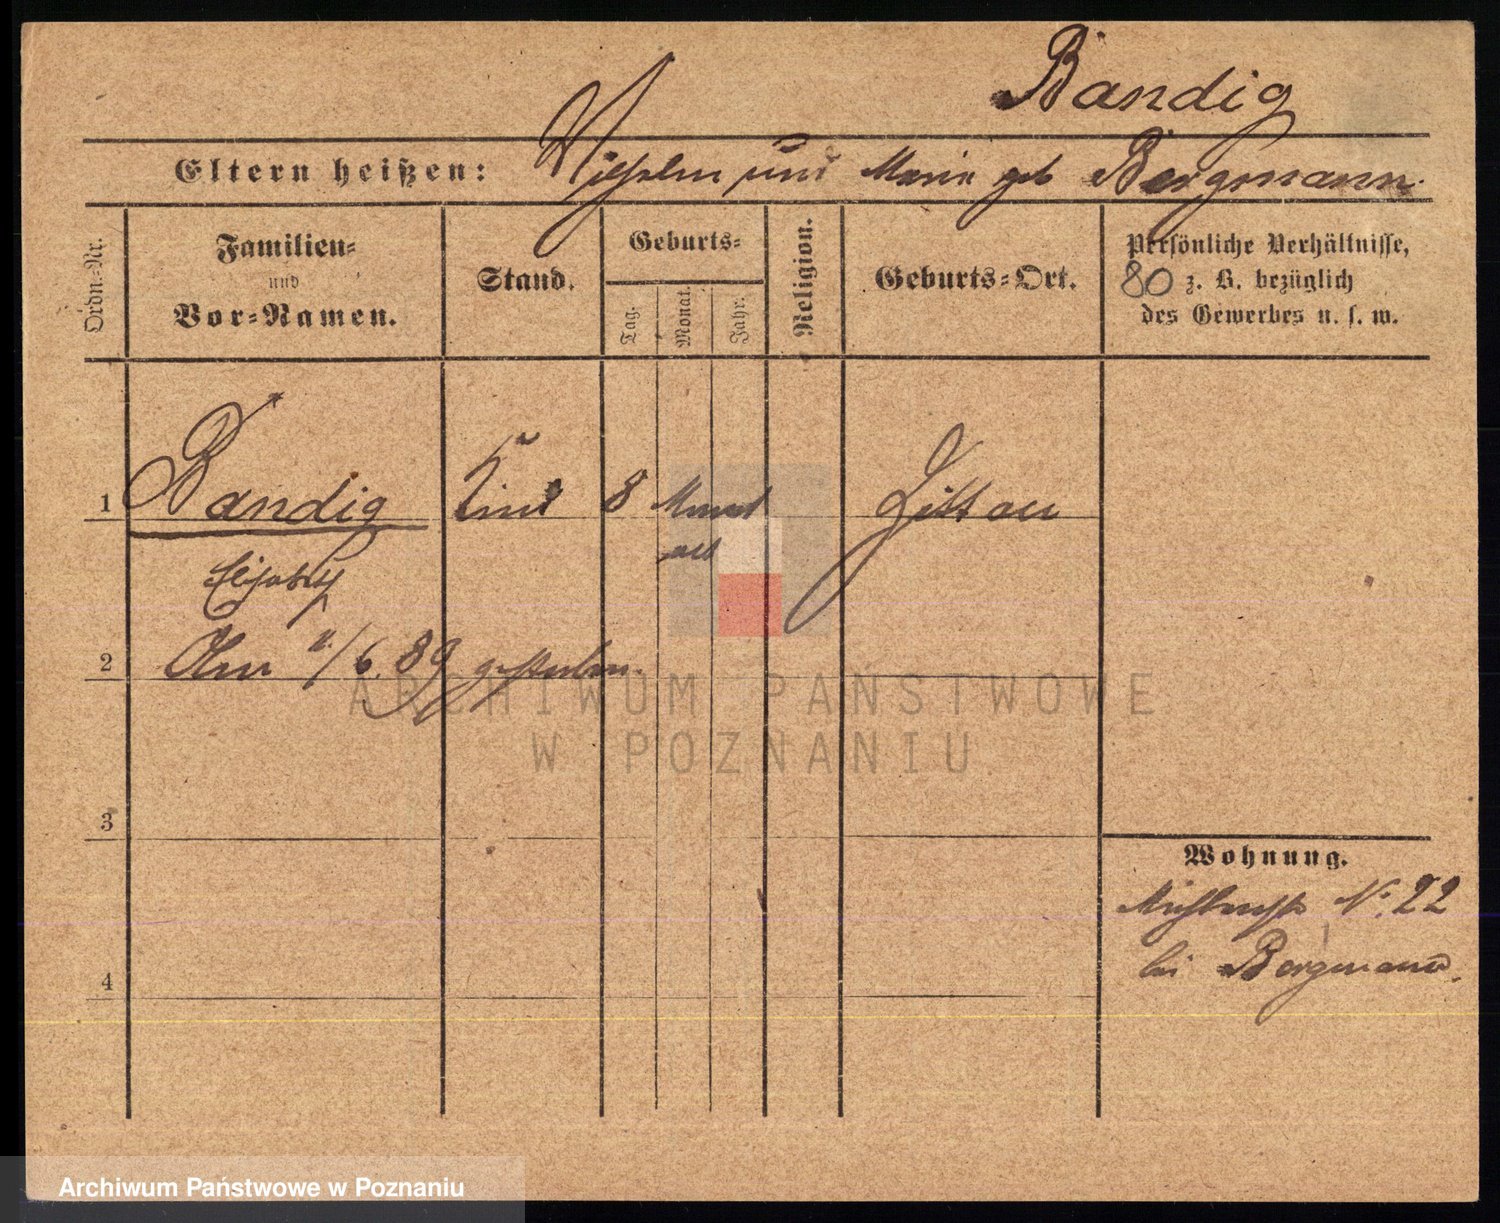 Bandig
Eltern heißen: Wilhelm und Marie geb Bergmann.
Ordn.-Nr.
Familien-
und
Vor-Namen.
Stand.
Geburts-
Tag.
Monat.
Jahr.
Religion.
Geburts-Ort.
Persönliche Verhältnisse,
80 z. B. bezüglich
des Gewerbes u. s. w.
1 Bandig Kind 8 Monat Zittau
alt
Elisabeth
2 11/6. 89 gestorben.
3
4
Wohnung.
N. 22
bei Bergmann.
ARCHIWUM PAŃSTWOWE
W POZNANIU
Archiwum Państwowe w Poznaniu